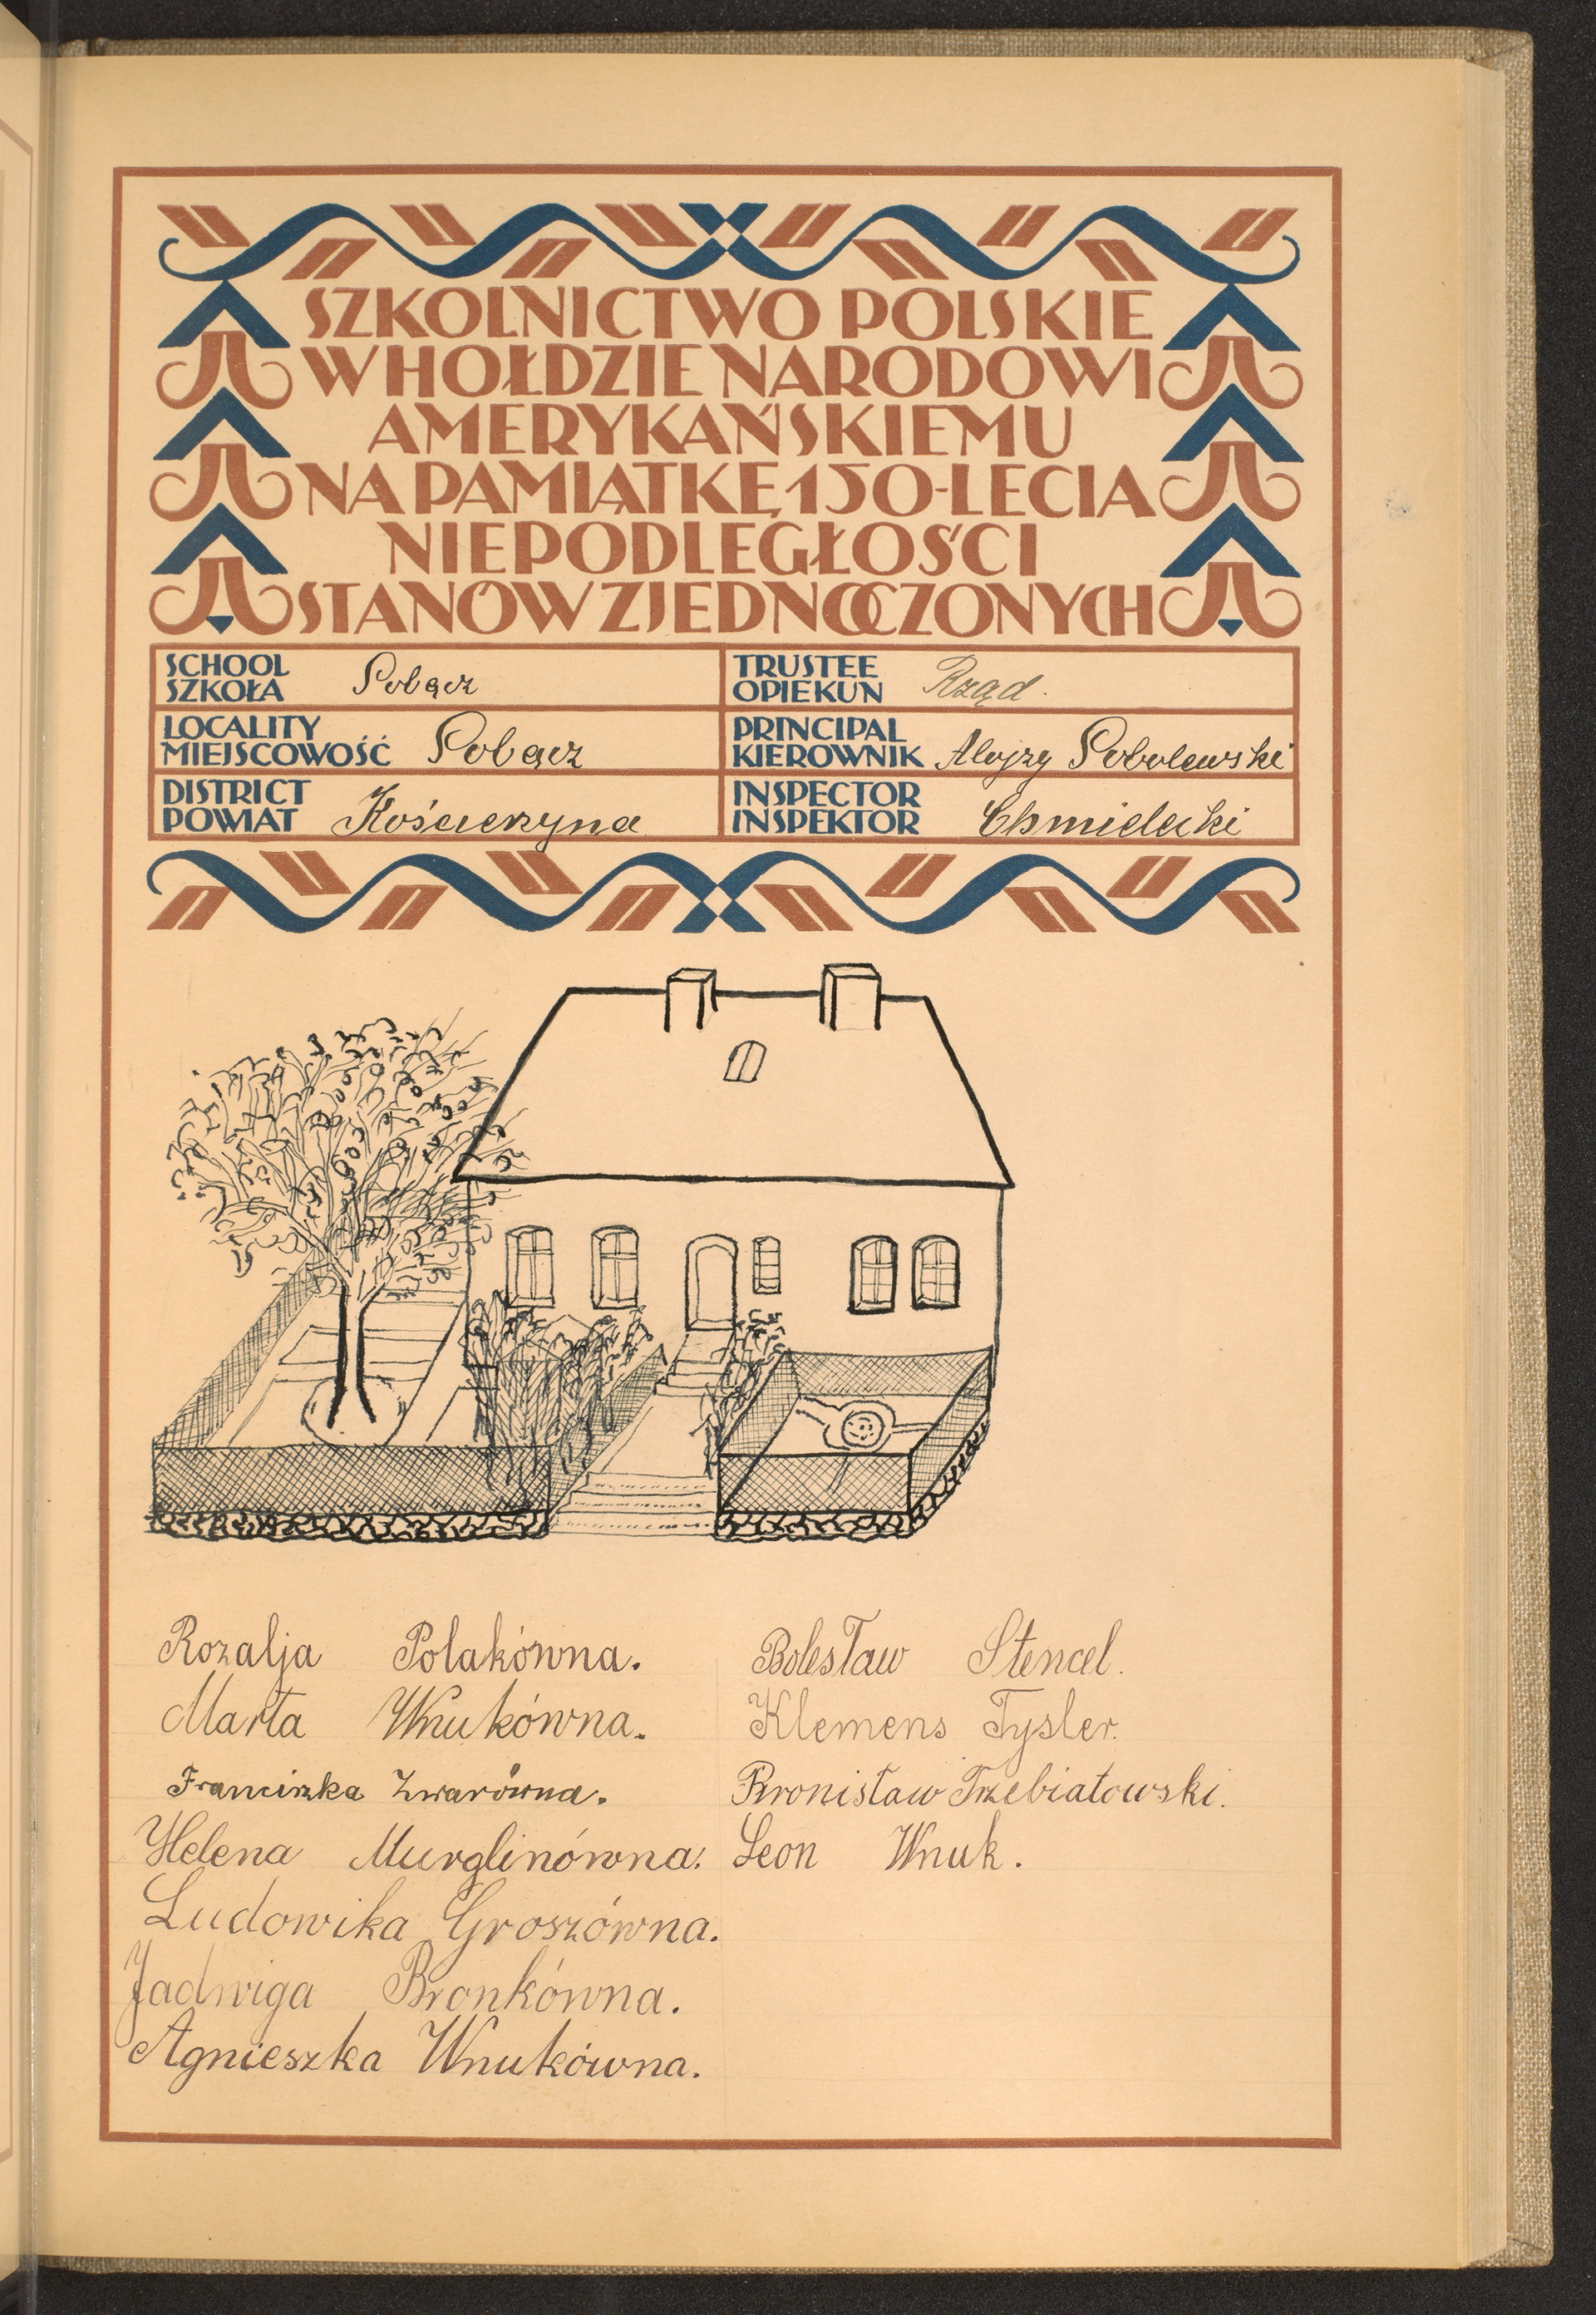 SZKOLNICTWO POLSKIE
W HOŁDZIE NARODOWI
AMERYKAŃSKIEMU
NA PAMIĄTKĘ 150-LECIA
NIEPODLEGŁOŚCI
STANÓW ZJEDNOCZONYCH
SCHOOL
SZKOŁA Sobącz
TRUSTEE
OPIEKUN Rząd.
LOCALITY
MIEJSCOWOŚĆ Sobącz
PRINCIPAL
KIEROWNIK Alojzy Sobolewski
DISTRICT
POWIAT Kościerzyna
INSPECTOR
INSPEKTOR Chmielecki
Rozalja Polakówna.
Marta Wnukówna.
Franciszka Zwarówna.
Helena Murglinówna.
Ludowika Groszówna.
Jadwiga Bronkówna.
Agnieszka Wnukówna.
Bolesław Stencel.
Klemens Tysler.
Bronisław Trzebiatowski.
Leon Wnuk.